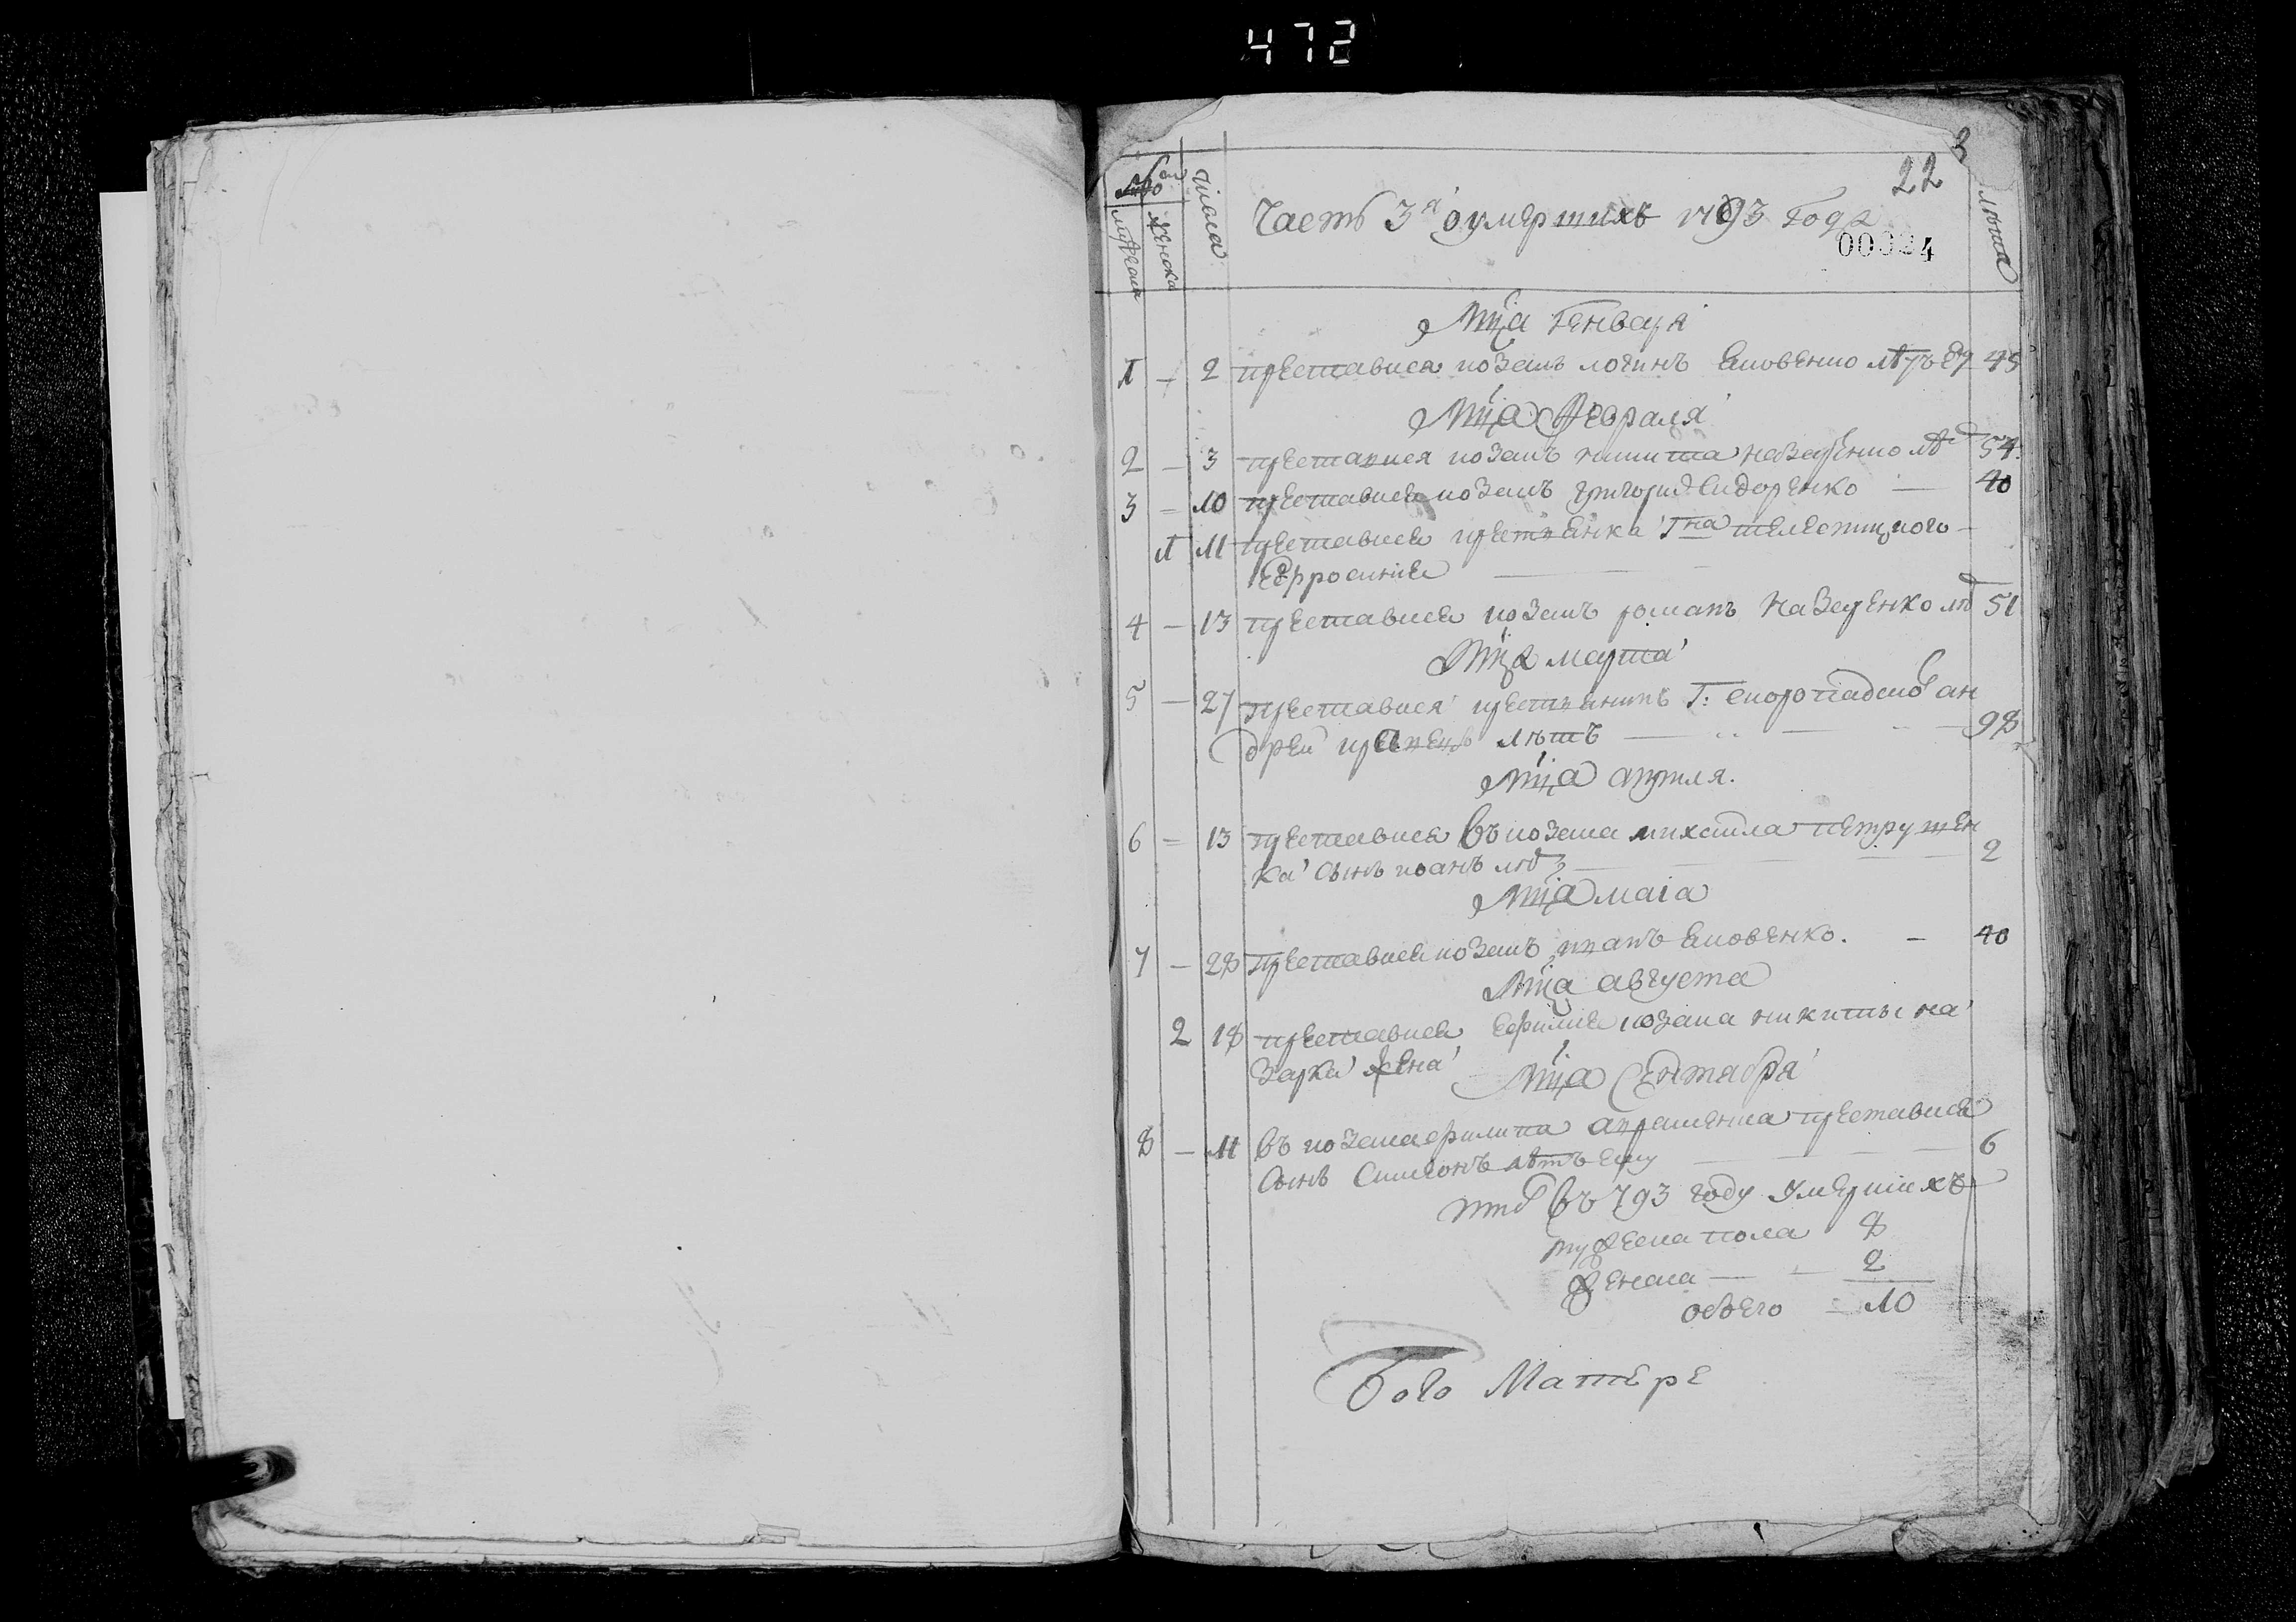 472
3
22
мужеска
женска
числа
лѣта
Часть 3я оумершихъ 1793 Года
00024
Мца Генваря
1 - 2 преставися козакъ логинъ Яковенко лѣтъ ему 45
Мца Февраля
2 - 3 преставися козакъ никита назаренко лѣт 54
3 - 10 преставися козакъ григорий Сидоренко - 40
1 11 преставися крестянка Гна
Ефросиния
4 - 13 преставися козакъ романъ Назаренко лѣт 51
Мца марта
5 - 27 преставися крестянинъ Г: скоропадско ан
дрей лѣтъ - 98
Мца априля.
6 - 13 преставися въ козака михаила петрушен
ка сынъ иоанъ лѣт - 2
Мца маіа
7 - 28 преставися козакъ Яковенко. - 40
Мца августа
2 18 преставися Ефимия козака никиты на
зарка жена
Мца Сентября
8 - 11 въ козака филипа авраменка преставися
Сынъ Симеонъ лѣтъ ему - 6
въ 793 году умершихъ
мужеска пола 8
женска - 2
обоего - 10
Бого Матере